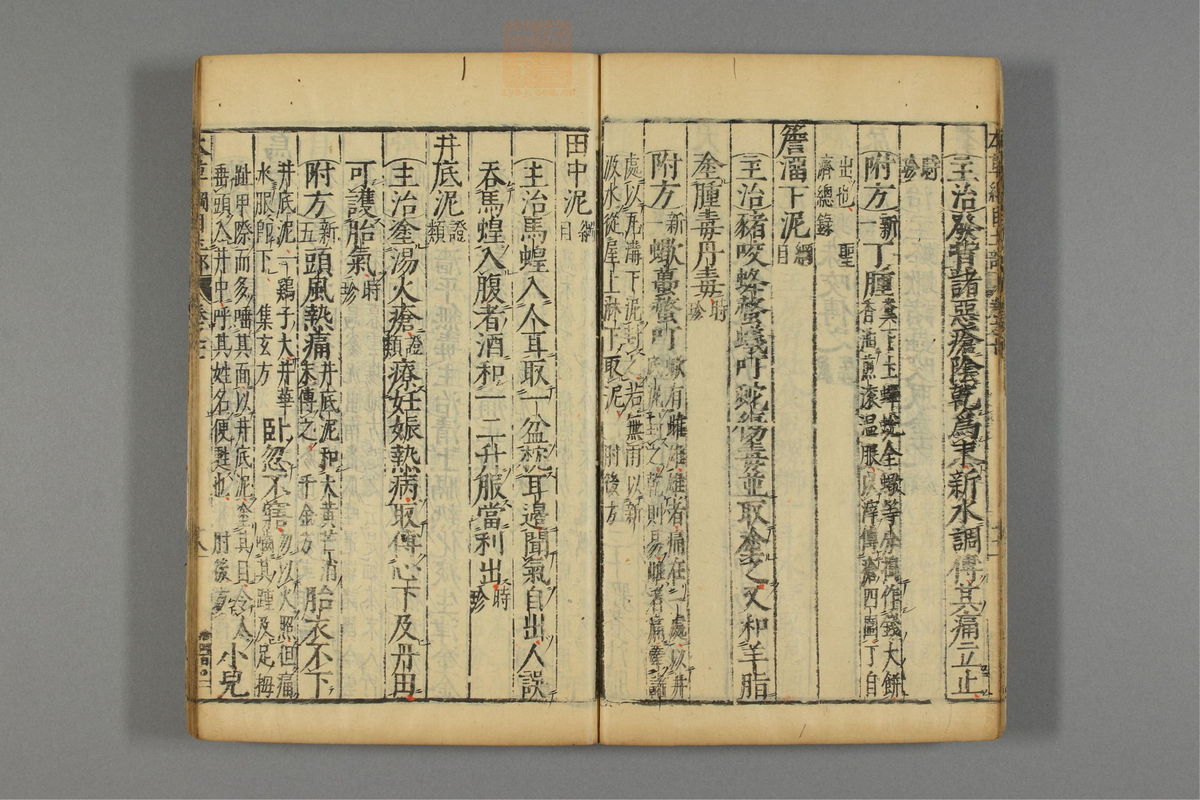 主治發背諸惡瘡陰乾爲末新水調傅其痛立止
時珍
附方新一丁腫糞下土蟬蛻全蠍等分搗作錢大餅
香油煎滚温服以滓傅瘡四圍丁自
出也聖
濟總錄
簷溜下泥綱目
主治豬咬蜂螫蟻叮蛇傷毒並取塗之又和羊脂
塗腫毒丹毒時珍
附方新一蠍蠆螫叮蠍有雌雄雄者痛在一處以井
底泥封之乾則易雌者痛牽諸
處以瓦溝下泥封之若無雨以新
汲水從屋上淋下取泥肘後方
田中泥綱目
主治馬蝗入人耳取一盆枕耳邊聞氣自出人誤
吞馬蝗入腹者酒和一二升服當利出時珍
井底泥證類
主治塗湯火瘡證類療妊娠熱病取傅心下及丹田
可護胎氣時珍
附方新五頭風熱痛井底泥和大黄芒消
末傅之千金方胎衣不下
井底泥一鷄子大井華
水服卽下集玄方臥忽不寤勿以火照但痛
囓其踵及足拇
趾甲際而多唾其面以井底泥塗其目令人
垂頭入井中呼其姓名便甦也肘後方小兒